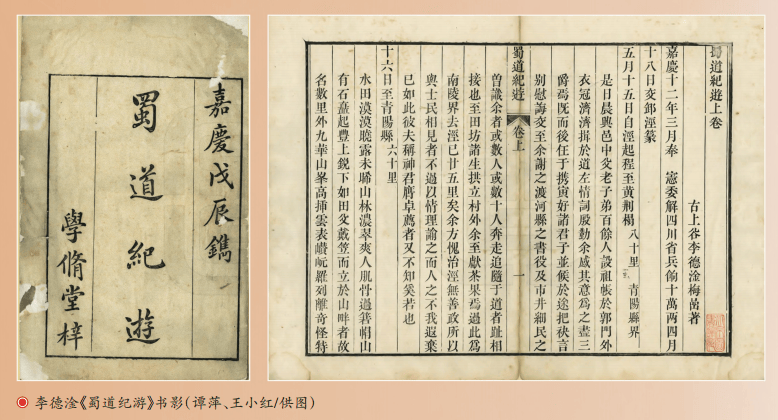 嘉慶戊辰鐫
蜀道紀遊
學脩堂梓
蜀道紀遊上卷
古上谷李德淦梅著
嘉慶十二年三月奉 憲委解四川省兵餉十萬兩四月
十八日交卸涇篆
五月十五日自涇起程至黄荆楊 八十里 青陽縣界
是日晨興邑中父老子弟百餘人設祖帳於郭門外
衣冠濟濟揖於道左情詞殷勤余感其意爲之盡三
爵焉既而後任于携寅好諸君子並候於途把袂言
别慰誨交至余謝之渡河縣之書役及市井細民之
蜀道紀遊 卷上 一
曽識余者或數人或數十人奔走追隨于道者趾相
接也至田坊諸生拱立村外余至獻茶果焉過此爲
南陵界去涇已廿五里矣余方愧治涇無善政所以
與士民相見者不過以情理諭之而人之不我遐棄
已如此彼夫稱神君膺卓薦者又不知奚若也
十六日至青陽縣 六十里
水田漠漠曉露未晞山林濃翠爽人肌骨過帽山
有石矗起豐上銳下如田父戴笠而立於山畔者故
名數里外九華山峯高揷雲表巑岏羅列離奇怪特
李德淦《蜀道纪游》书影(谭萍、王小红/供图)